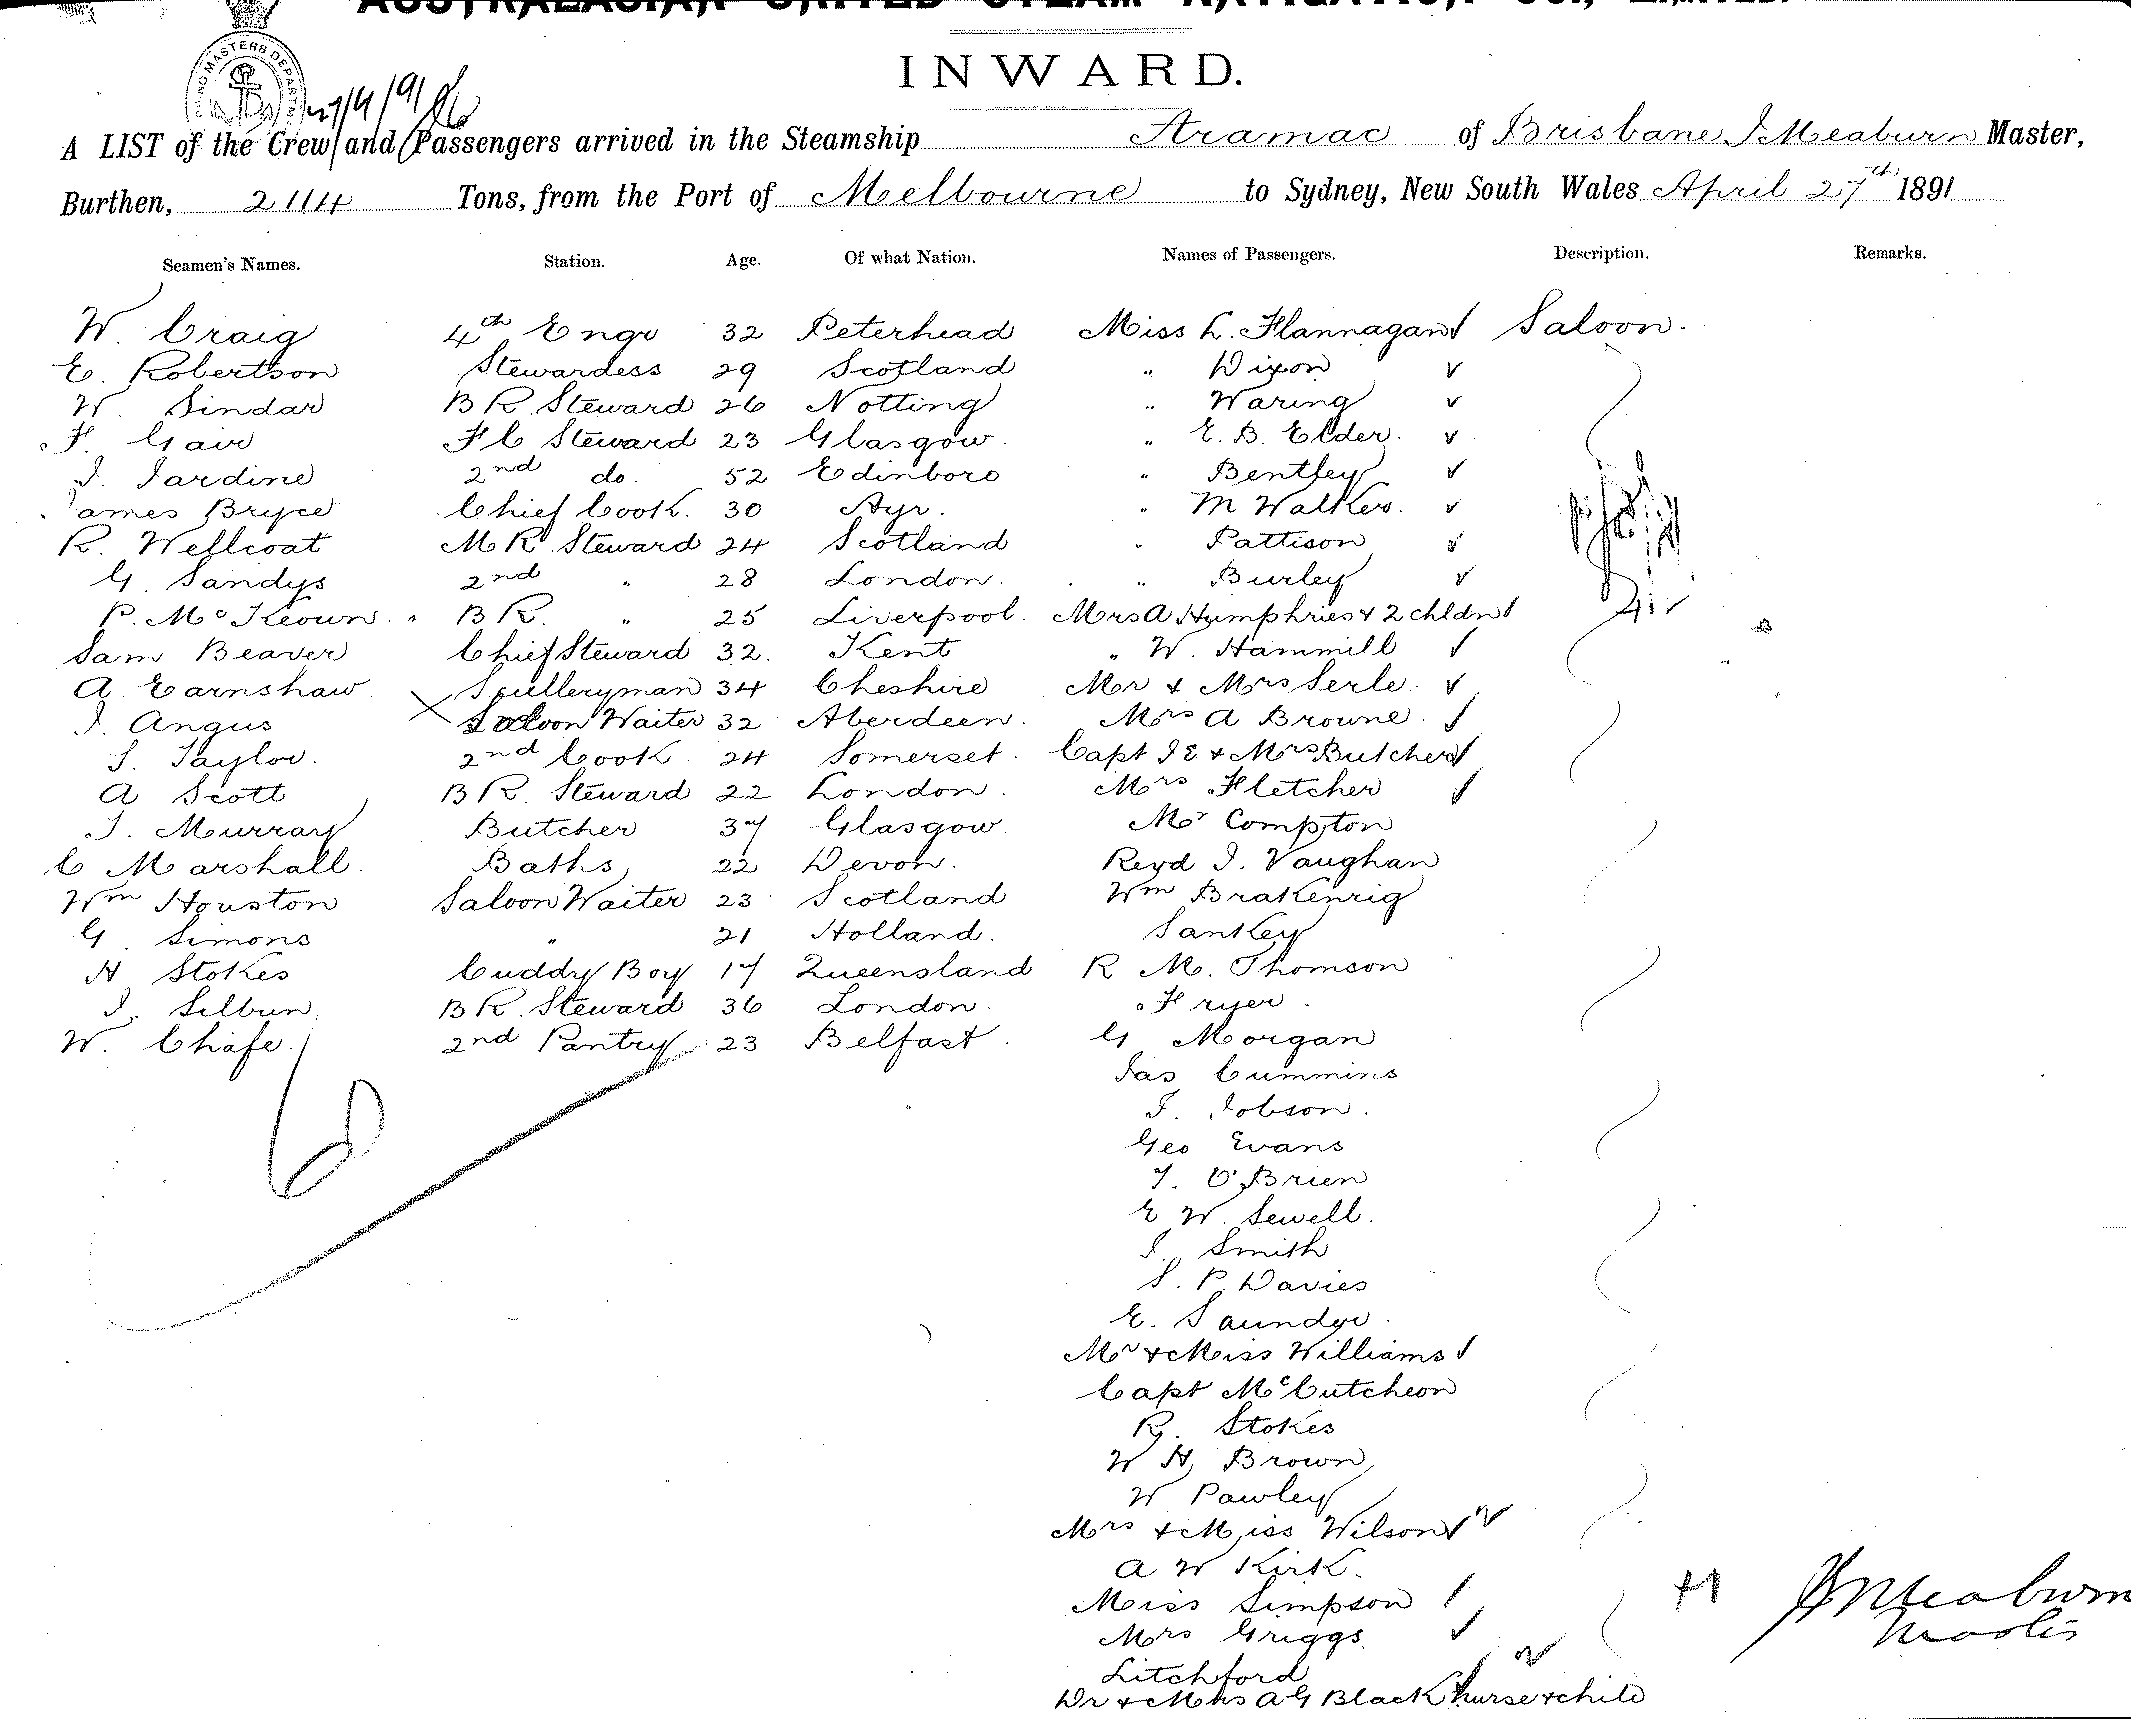 AUSTRALASIAN UNITED STEAM NAVIGATION CO., LIMITED.
INWARD.
27/4/91
A LIST of the Crew and Passengers arrived in the Steamship Aramac of Brisbane, J Meaburn Master,
Burthen, 2114 Tons, from the Port of Melbourne to Sydney, New South Wales April 27th 1891
Seamen's Names. Station. Age. Of what Nation. Names of Passengers. Description. Remarks.
W. Craig 4th Engr 32 Peterhead Miss L. Flannagan Saloon.
E. Robertson Stewardess 29 Scotland " Dixon
W. Sindar B R Steward 26 Notting " Waring
F. Gair F C Steward 23 Glasgow. " E. B. Elder.
J. Jardine 2nd do. 52 Edinboro " Bentley
James Bryce Chief Cook. 30 Ayr. " M Walker.
R. Wellcoat M R Steward 24 Scotland " Pattison
G. Sandys 2nd " 28 London. " Burley
P. McKeown. B R. " 25 Liverpool. Mrs A Humphries & 2 chldn
Sam Beaver Chief Steward 32. Kent " W. Hammill
A. Earnshaw Sculleryman 34 Cheshire Mr & Mrs Serle.
J. Angus Saloon Waiter 32 Aberdeen. Mrs A Browne.
S. Taylor. 2nd Cook 24 Somerset. Capt J E & Mrs Butcher
A Scott B R. Steward 22 London. Mrs Fletcher
J. Murray Butcher 37 Glasgow Mr Compton
C Marshall. Baths 22 Devon. Revd J. Vaughan
Wm Houston Saloon Waiter 23 Scotland Wm Brakenrig
G. Simons " 21 Holland. Sankey
H Stokes Cuddy Boy 17 Queensland R M. Thomson
J. Silbun B R. Steward 36 London. Fryer.
W. Chafe. 2nd Pantry 23 Belfast. G Morgan
Jas Cummins
J. Jobson.
Geo Evans
T. O'Brien
E W. Sewell.
J. Smith
S. P. Davies
E. Saundyr.
Mr & Miss Williams
Capt McCutcheon
R. Stokes
W H. Brown
W Pawley
Mrs & Miss Wilson
A W Kirk.
Miss Simpson
Mrs Griggs.
Litchford
Dr & Mrs A G Black nurse & child
J Meaburn
Master